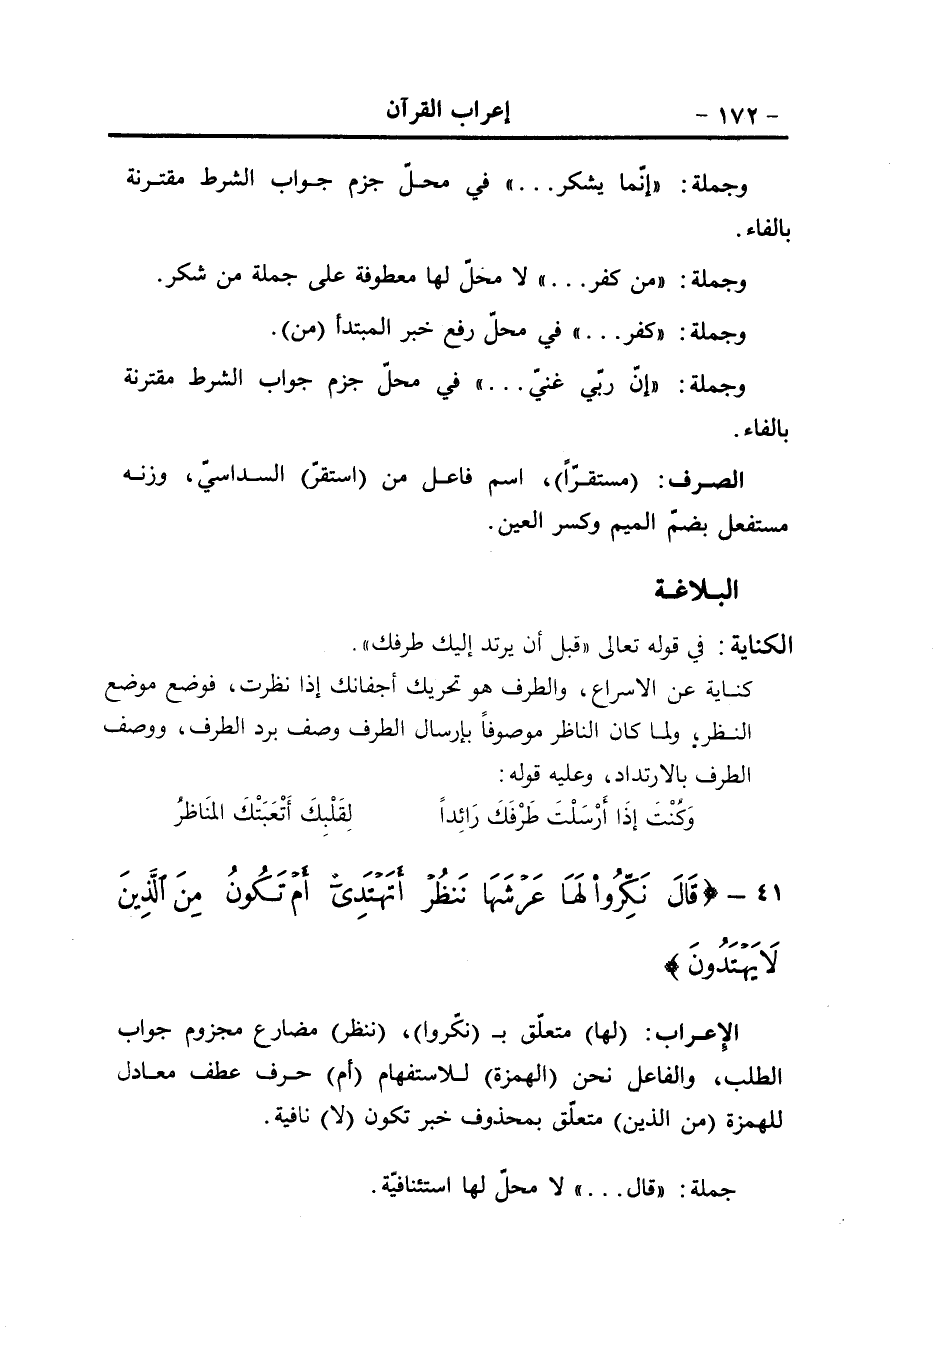 - ١٧٢ - إعراب القرآن
وجملة: «إنّما يشكر...» في محلّ جزم جواب الشرط مقترنة
بالفاء.
وجملة: «من كفر...» لا محلّ لها معطوفة على جملة من شكر.
وجملة: «كفر...» في محلّ رفع خبر المبتدأ (من).
وجملة: «إنّ ربّي غنيّ...» في محلّ جزم جواب الشرط مقترنة
بالفاء.
الصرف: (مستقرّاً)، اسم فاعل من (استقرّ) السداسيّ، وزنه
مستفعل بضمّ الميم وكسر العين.
البلاغة
الكناية: في قوله تعالى «قبل أن يرتد إليك طرفك».
كناية عن الاسراع، والطرف هو تحريك أجفانك إذا نظرت، فوضع موضع
النظر، ولما كان الناظر موصوفاً بإرسال الطرف وصف برد الطرف، ووصف
الطرف بالارتداد، وعليه قوله:
وَكُنْتَ إذَا أَرْسَلْتَ طَرْفَكَ رَائِداً لِقَلْبِكَ أَتْعَبَتْكَ المَنَاظِرُ
٤١ - ﴿قَالَ نَكِّرُوا۟ لَهَا عَرْشَهَا نَنظُرْ أَتَهْتَدِىٓ أَمْ تَكُونُ مِنَ ٱلَّذِينَ
لَا يَهْتَدُونَ﴾
الإعراب: (لها) متعلّق بـ (نكّروا)، (ننظر) مضارع مجزوم جواب
الطلب، والفاعل نحن (الهمزة) للاستفهام (أم) حرف عطف معادل
للهمزة (من الذين) متعلّق بمحذوف خبر تكون (لا) نافية.
جملة: «قال...» لا محلّ لها استئنافيّة.